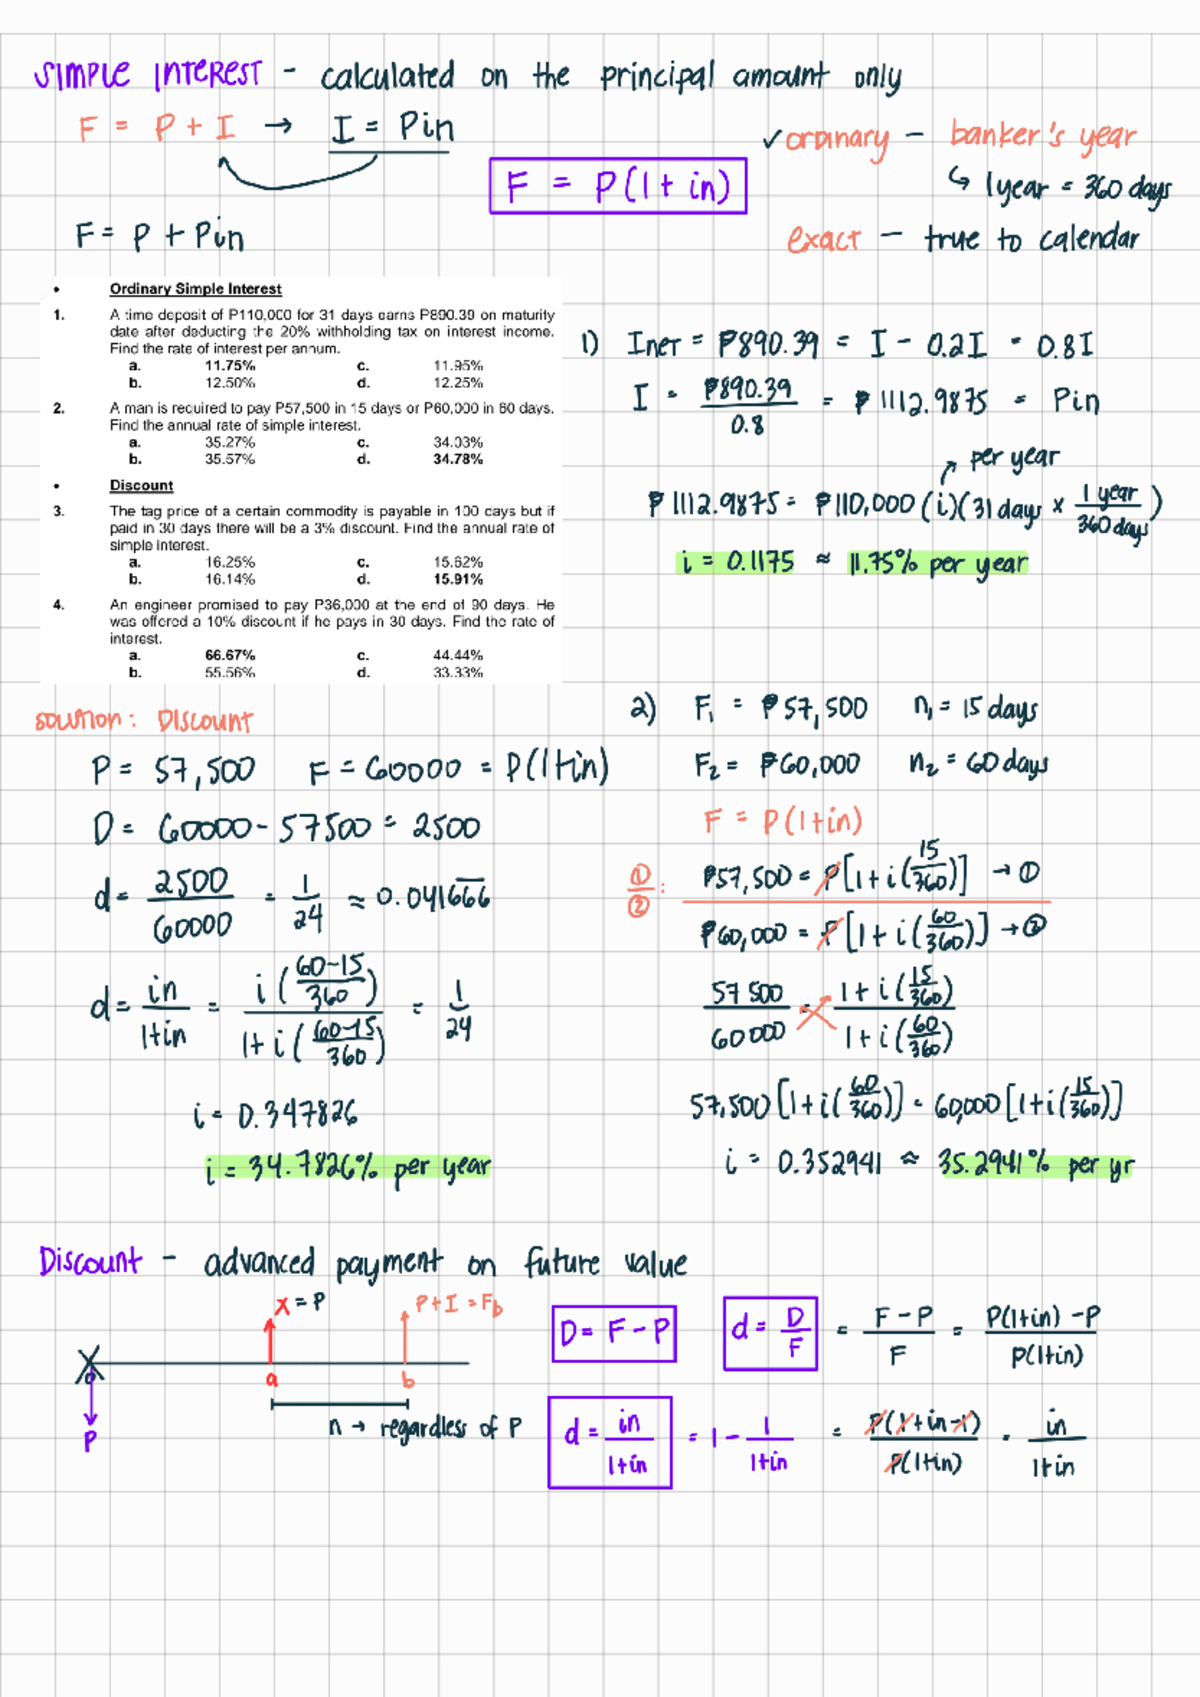 SIMPLE INTEREST - calculated on the principal amount only
F = P + I → I = Pin
F = P(1 + in)
✓ordinary - banker's year
↳ 1year = 360 days
F = P + Pin
exact - true to calendar
• Ordinary Simple Interest
1. A time deposit of P110,000 for 31 days earns P890.39 on maturity
date after deducting the 20% withholding tax on interest income.
Find the rate of interest per annum.
a. 11.75% c. 11.95%
b. 12.50% d. 12.25%
2. A man is required to pay P57,500 in 15 days or P60,000 in 60 days.
Find the annual rate of simple interest.
a. 35.27% c. 34.03%
b. 35.57% d. 34.78%
• Discount
3. The tag price of a certain commodity is payable in 100 days but if
paid in 30 days there will be a 3% discount. Find the annual rate of
simple interest.
a. 16.25% c. 15.62%
b. 16.14% d. 15.91%
4. An engineer promised to pay P36,000 at the end of 90 days. He
was offered a 10% discount if he pays in 30 days. Find the rate of
interest.
a. 66.67% c. 44.44%
b. 55.56% d. 33.33%
1) INET = ₱890.39 = I - 0.2I = 0.8I
I = ₱890.39 / 0.8 = ₱1112.9875 = Pin
per year
₱1112.9875 = ₱110,000 (i)(31 days × 1 year / 360 days)
i = 0.1175 ≈ 11.75% per year
SOLUTION: DISCOUNT
P = 57,500 F = 60000 = P(1+in)
D = 60000 - 57500 = 2500
d = 2500 / 60000 = 1/24 ≈ 0.041666
d = in / 1+in = i(60-15 / 360) / 1+i(60-15 / 360) = 1/24
i = 0.347826
i = 34.7826% per year
2) F₁ = ₱57,500 n₁ = 15 days
F₂ = ₱60,000 n₂ = 60 days
F = P(1+in)
①/②: ₱57,500 = P[1+i(15/360)] → ①
₱60,000 = P[1+i(60/360)] → ②
57500 / 60000 = 1+i(15/360) / 1+i(60/360)
57,500[1+i(60/360)] = 60,000[1+i(15/360)]
i = 0.352941 ≈ 35.2941% per yr
Discount - advanced payment on future value
x = P P+I = Fb
0 a b
P
n → regardless of P
D = F - P
d = D/F = F-P / F = P(1+in)-P / P(1+in)
d = in / 1+in = 1 - 1 / 1+in = P(1+in-1) / P(1+in) = in / 1+in